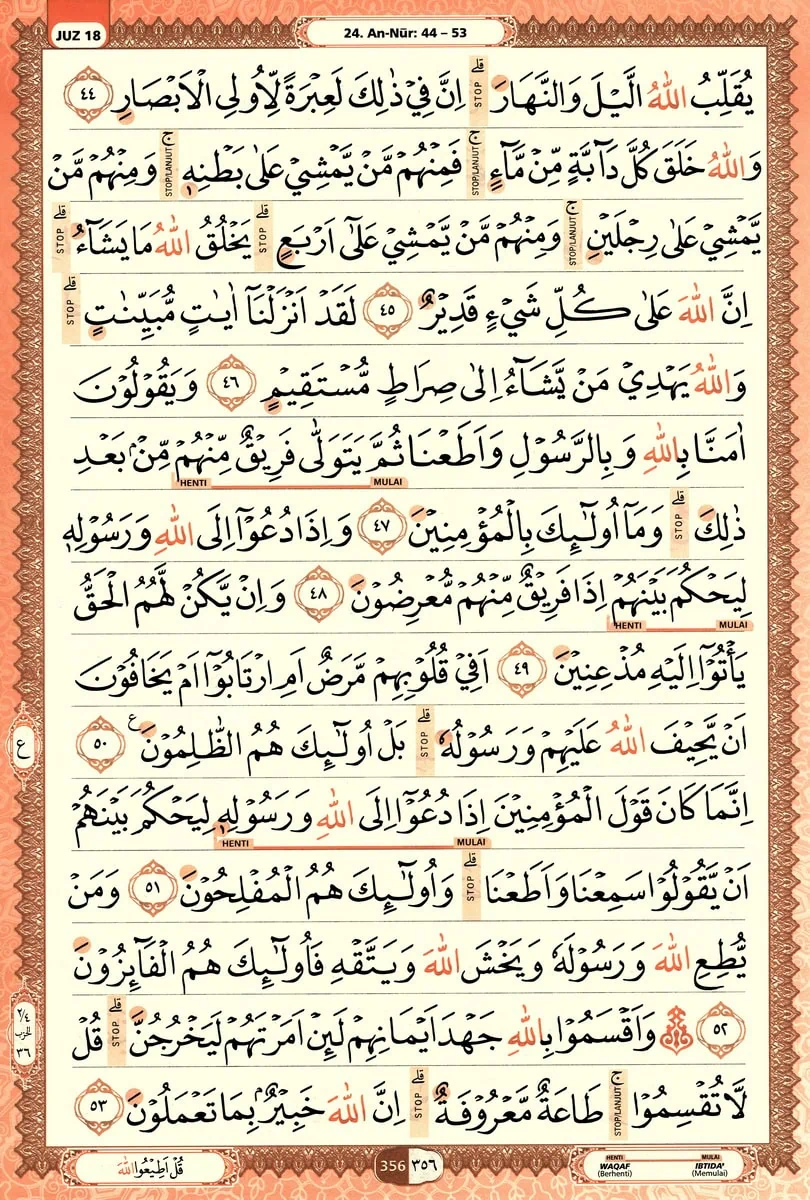 JUZ 18
24. An-Nūr: 44 – 53
يُقَلِّبُ اللّٰهُ الَّيْلَ وَالنَّهَارَۗ STOP اِنَّ فِيْ ذٰلِكَ لَعِبْرَةً لِّاُولِى الْاَبْصَارِ ٤٤
وَاللّٰهُ خَلَقَ كُلَّ دَاۤبَّةٍ مِّنْ مَّاۤءٍۚ STOP/LANJUT فَمِنْهُمْ مَّنْ يَّمْشِيْ عَلٰى بَطْنِهٖۚ STOP/LANJUT وَمِنْهُمْ مَّنْ
يَّمْشِيْ عَلٰى رِجْلَيْنِۚ STOP/LANJUT وَمِنْهُمْ مَّنْ يَّمْشِيْ عَلٰٓى اَرْبَعٍۗ STOP يَخْلُقُ اللّٰهُ مَا يَشَاۤءُۗ STOP
اِنَّ اللّٰهَ عَلٰى كُلِّ شَيْءٍ قَدِيْرٌ ٤٥ لَقَدْ اَنْزَلْنَآ اٰيٰتٍ مُّبَيِّنٰتٍۗ STOP
وَاللّٰهُ يَهْدِيْ مَنْ يَّشَاۤءُ اِلٰى صِرَاطٍ مُّسْتَقِيْمٍ ٤٦ وَيَقُوْلُوْنَ
اٰمَنَّا بِاللّٰهِ وَبِالرَّسُوْلِ وَاَطَعْنَا ثُمَّ يَتَوَلّٰى فَرِيْقٌ مِّنْهُمْ مِّنْۢ بَعْدِ
MULAI HENTI
ذٰلِكَۗ STOP وَمَآ اُولٰۤىِٕكَ بِالْمُؤْمِنِيْنَ ٤٧ وَاِذَا دُعُوْٓا اِلَى اللّٰهِ وَرَسُوْلِهٖ
لِيَحْكُمَ بَيْنَهُمْ اِذَا فَرِيْقٌ مِّنْهُمْ مُّعْرِضُوْنَ ٤٨ وَاِنْ يَّكُنْ لَّهُمُ الْحَقُّ
MULAI HENTI
يَأْتُوْٓا اِلَيْهِ مُذْعِنِيْنَ ٤٩ اَفِيْ قُلُوْبِهِمْ مَّرَضٌ اَمِ ارْتَابُوْٓا اَمْ يَخَافُوْنَ
اَنْ يَّحِيْفَ اللّٰهُ عَلَيْهِمْ وَرَسُوْلُهٗۗ STOP بَلْ اُولٰۤىِٕكَ هُمُ الظّٰلِمُوْنَ ࣖ ٥٠
ع
اِنَّمَا كَانَ قَوْلَ الْمُؤْمِنِيْنَ اِذَا دُعُوْٓا اِلَى اللّٰهِ وَرَسُوْلِهٖ لِيَحْكُمَ بَيْنَهُمْ
MULAI HENTI
اَنْ يَّقُوْلُوْا سَمِعْنَا وَاَطَعْنَاۗ STOP وَاُولٰۤىِٕكَ هُمُ الْمُفْلِحُوْنَ ٥١ وَمَنْ
يُّطِعِ اللّٰهَ وَرَسُوْلَهٗ وَيَخْشَ اللّٰهَ وَيَتَّقْهِ فَاُولٰۤىِٕكَ هُمُ الْفَاۤىِٕزُوْنَ
٥٢ ۞ وَاَقْسَمُوْا بِاللّٰهِ جَهْدَ اَيْمَانِهِمْ لَىِٕنْ اَمَرْتَهُمْ لَيَخْرُجُنَّۗ STOP قُلْ
٢/٤
الحزب
٣٦
لَّا تُقْسِمُوْاۚ STOP/LANJUT طَاعَةٌ مَّعْرُوْفَةٌۗ STOP اِنَّ اللّٰهَ خَبِيْرٌۢ بِمَا تَعْمَلُوْنَ ٥٣
قُلْ اَطِيْعُوا اللّٰهَ
356 ٣٥٦
HENTI MULAI
WAQAF IBTIDA'
(Berhenti) (Memulai)